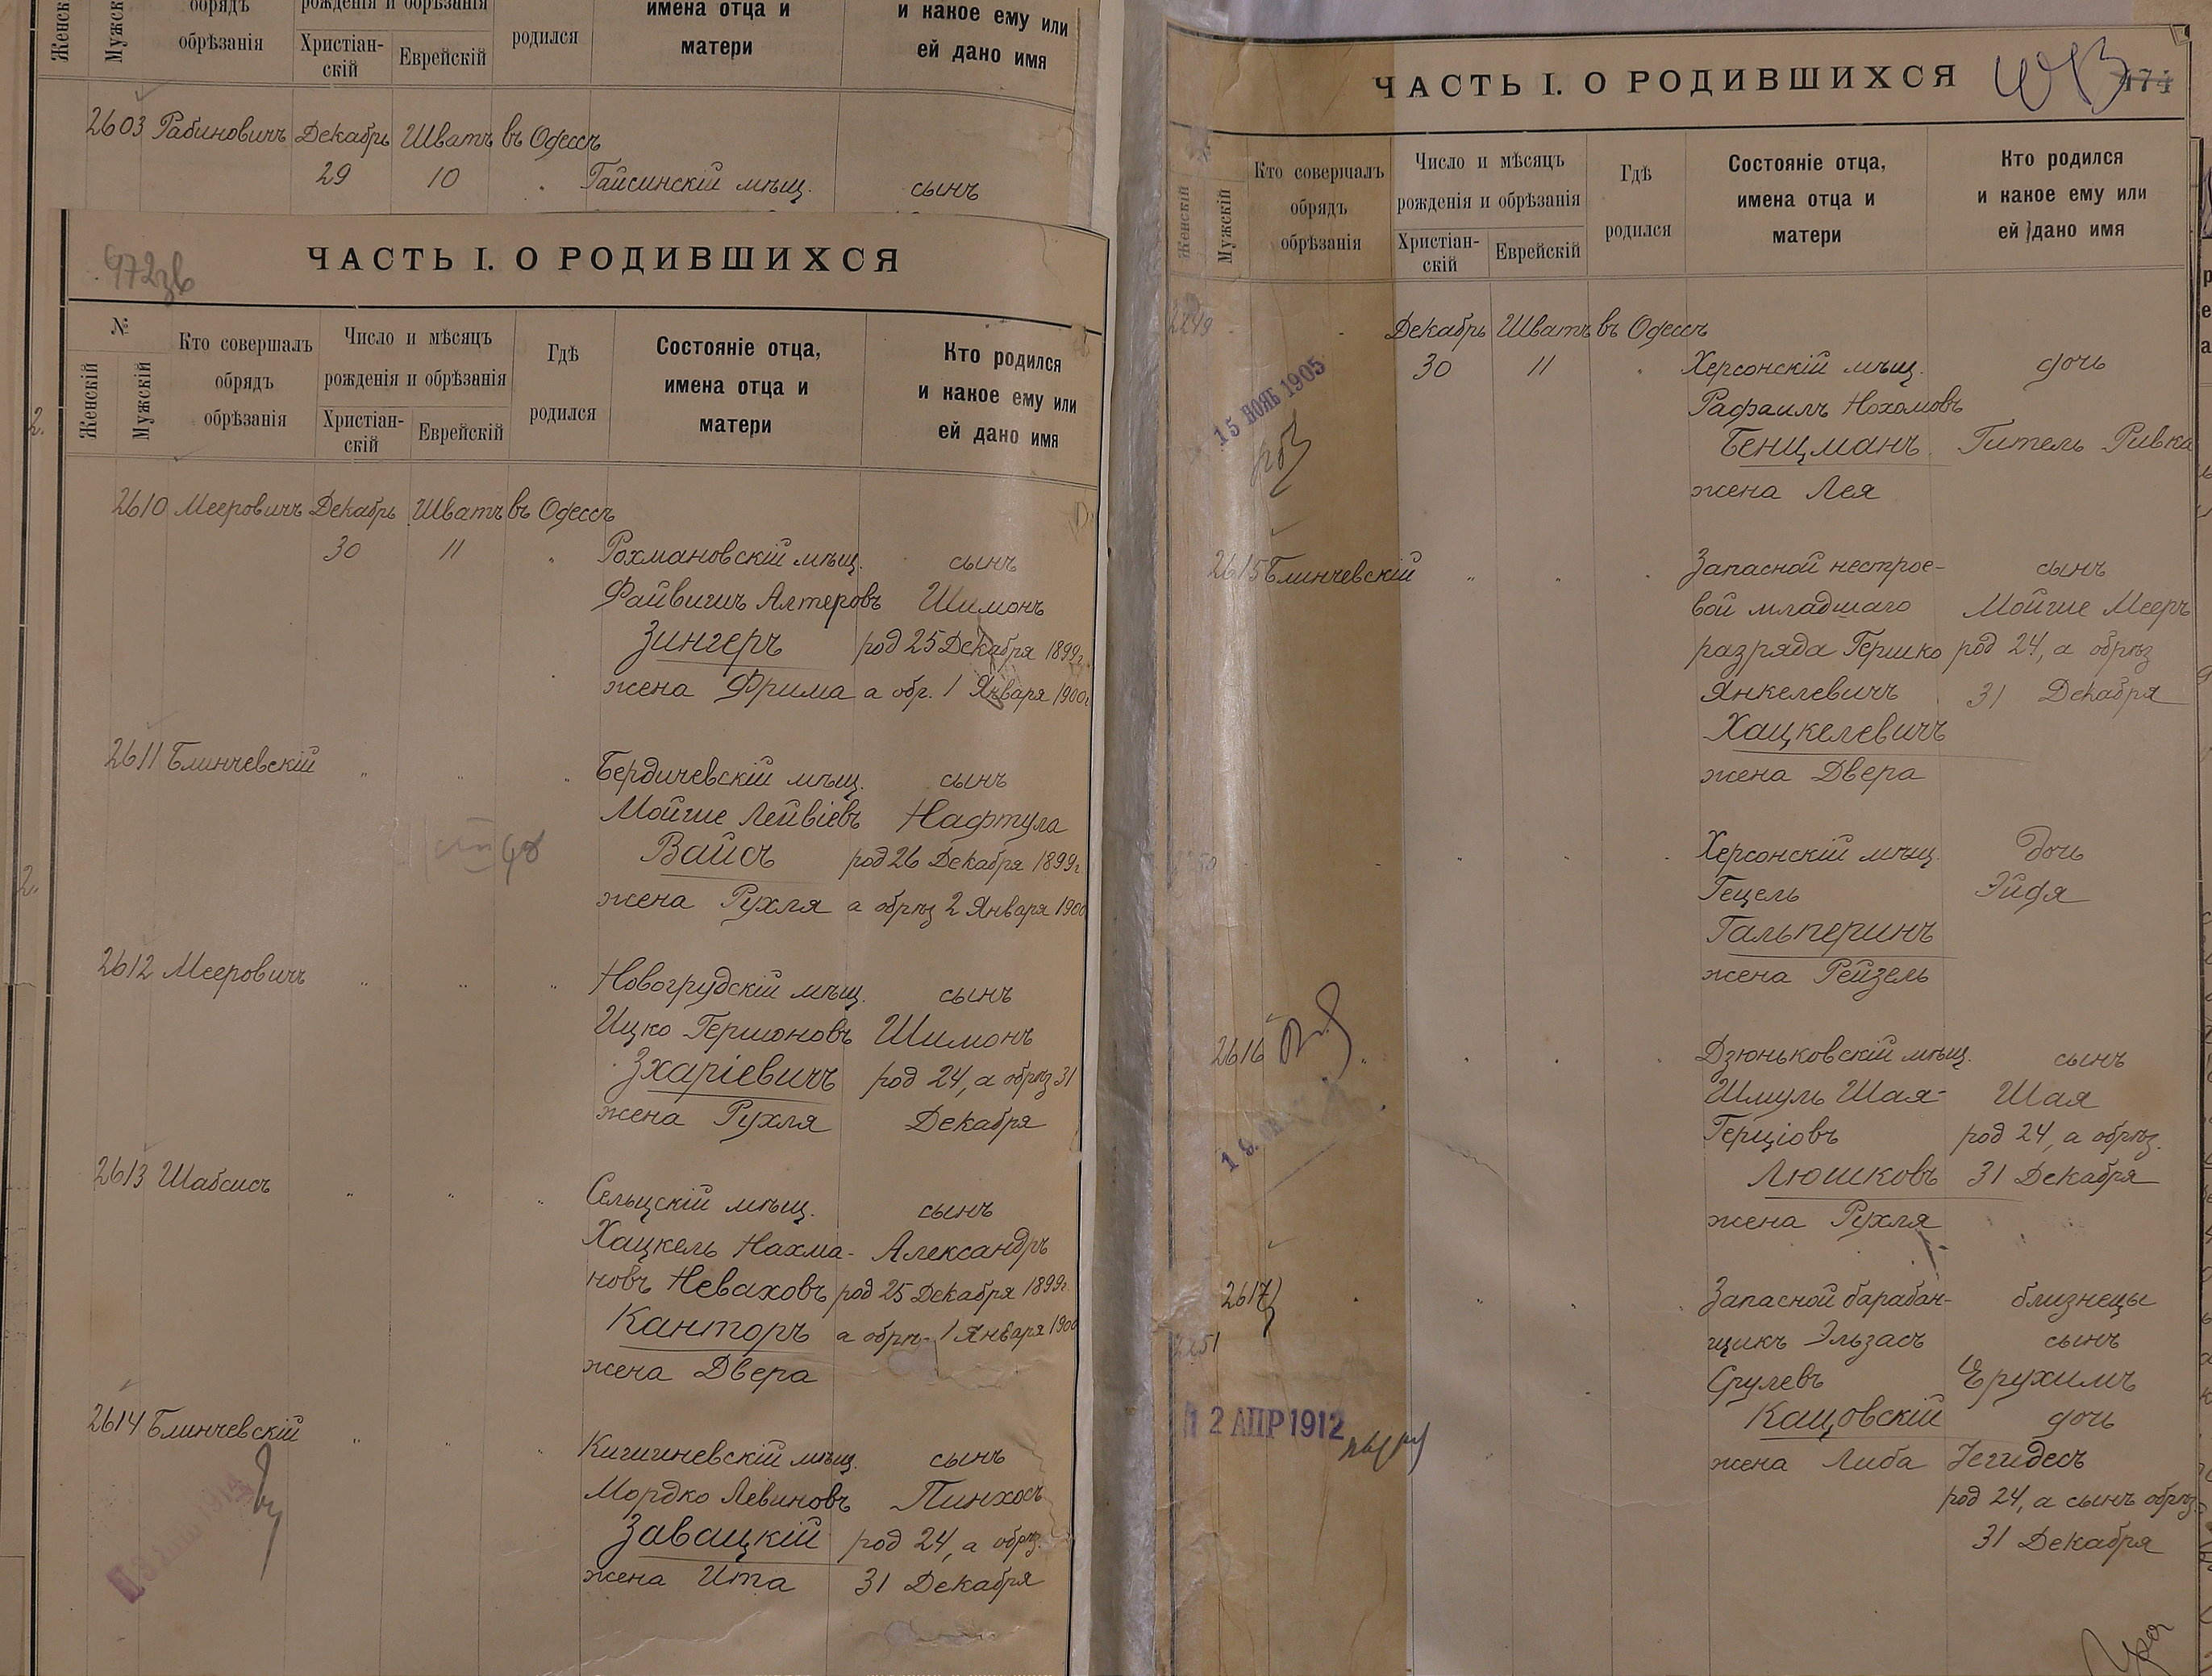 Женск Мужск обрядъ рожденія и обрѣзанія родился имена отца и и какое ему или
обрѣзанія Христіан- Еврейскій матери ей дано имя
скій
2603 Рабиновичъ Декабрь Шватъ въ Одессѣ
29 10 Гайсинскій мѣщ. сынъ
972
ЧАСТЬ I. О РОДИВШИХСЯ
№ Кто совершалъ Число и мѣсяцъ Гдѣ Состояніе отца, Кто родился
Женскій Мужскій обрядъ рожденія и обрѣзанія имена отца и и какое ему или
обрѣзанія Христіан- Еврейскій родился матери ей дано имя
скій
2610 Мееровичъ Декабрь Шватъ въ Одессѣ
30 11 " Рохмановскій мѣщ. сынъ
Файвишъ Алтеровъ Шимонъ
Зингеръ род 25 Декабря 1899г.
жена Фрима а обр. 1 Января 1900г
2611 Блинчевскій " " " Бердичевскій мѣщ. сынъ
Мойше Лейвіевъ Нафтула
Вайсъ род 26 Декабря 1899г.
жена Рухля а обрѣз 2 Января 1900
2612 Мееровичъ " " " Новогрудскій мѣщ. сынъ
Ицко Гершоновъ Шимонъ
Зхаріевичъ род 24, а обрѣз 31
жена Рухля Декабря
2613 Шабсисъ " " " Сельцскій мѣщ. сынъ
Хацкель Нахма- Александръ
новъ Неваховъ род 25 Декабря 1899г.
Канторъ а обрѣ- 1 Января 1900
жена Двера
2614 Блинчевскій " " " Кишиневскій мѣщ. сынъ
Мордко Левиновъ Пинхосъ
Завацкій род 24, а обрѣз.
жена Ита 31 Декабря
ЧАСТЬ I. О РОДИВШИХСЯ 474
Женскій Мужскій Кто совершалъ Число и мѣсяцъ Гдѣ Состояніе отца, Кто родился
обрядъ рожденія и обрѣзанія имена отца и и какое ему или
обрѣзанія Христіан- Еврейскій родился матери ей дано имя
скій
2249 Декабрь Шватъ въ Одессѣ
30 11 " Херсонскій мѣщ. дочь
15 НОЯБ 1905
Рафаилъ Нохомовъ
Бенцманъ Гитель Ривка
жена Лея
2615 Блинчевскій " " " Запасной нестрое- сынъ
вой младшаго Мойше Мееръ
разряда Гершко род 24, а обрѣз
Янкелевичъ 31 Декабря
Хацкелевичъ
жена Двера
2250 " " " Херсонскій мѣщ. Дочь
Гецель Эйдя
Гальперинъ
жена Рейзель
2616 " " " Дзюньковскій мѣщ. сынъ
Шмуль Шая- Шая
Герціовъ род 24, а обрѣз.
Люшковъ 31 Декабря
жена Рухля
2617 " " " Запасной барабан- близнецы
2251 щикъ Эльзасъ сынъ
Срулевъ Ерухимъ
Кацовскій дочь
12 АПР 1912
жена Либа Іегидесъ
род 24, а сынъ обрѣз.
31 Декабря